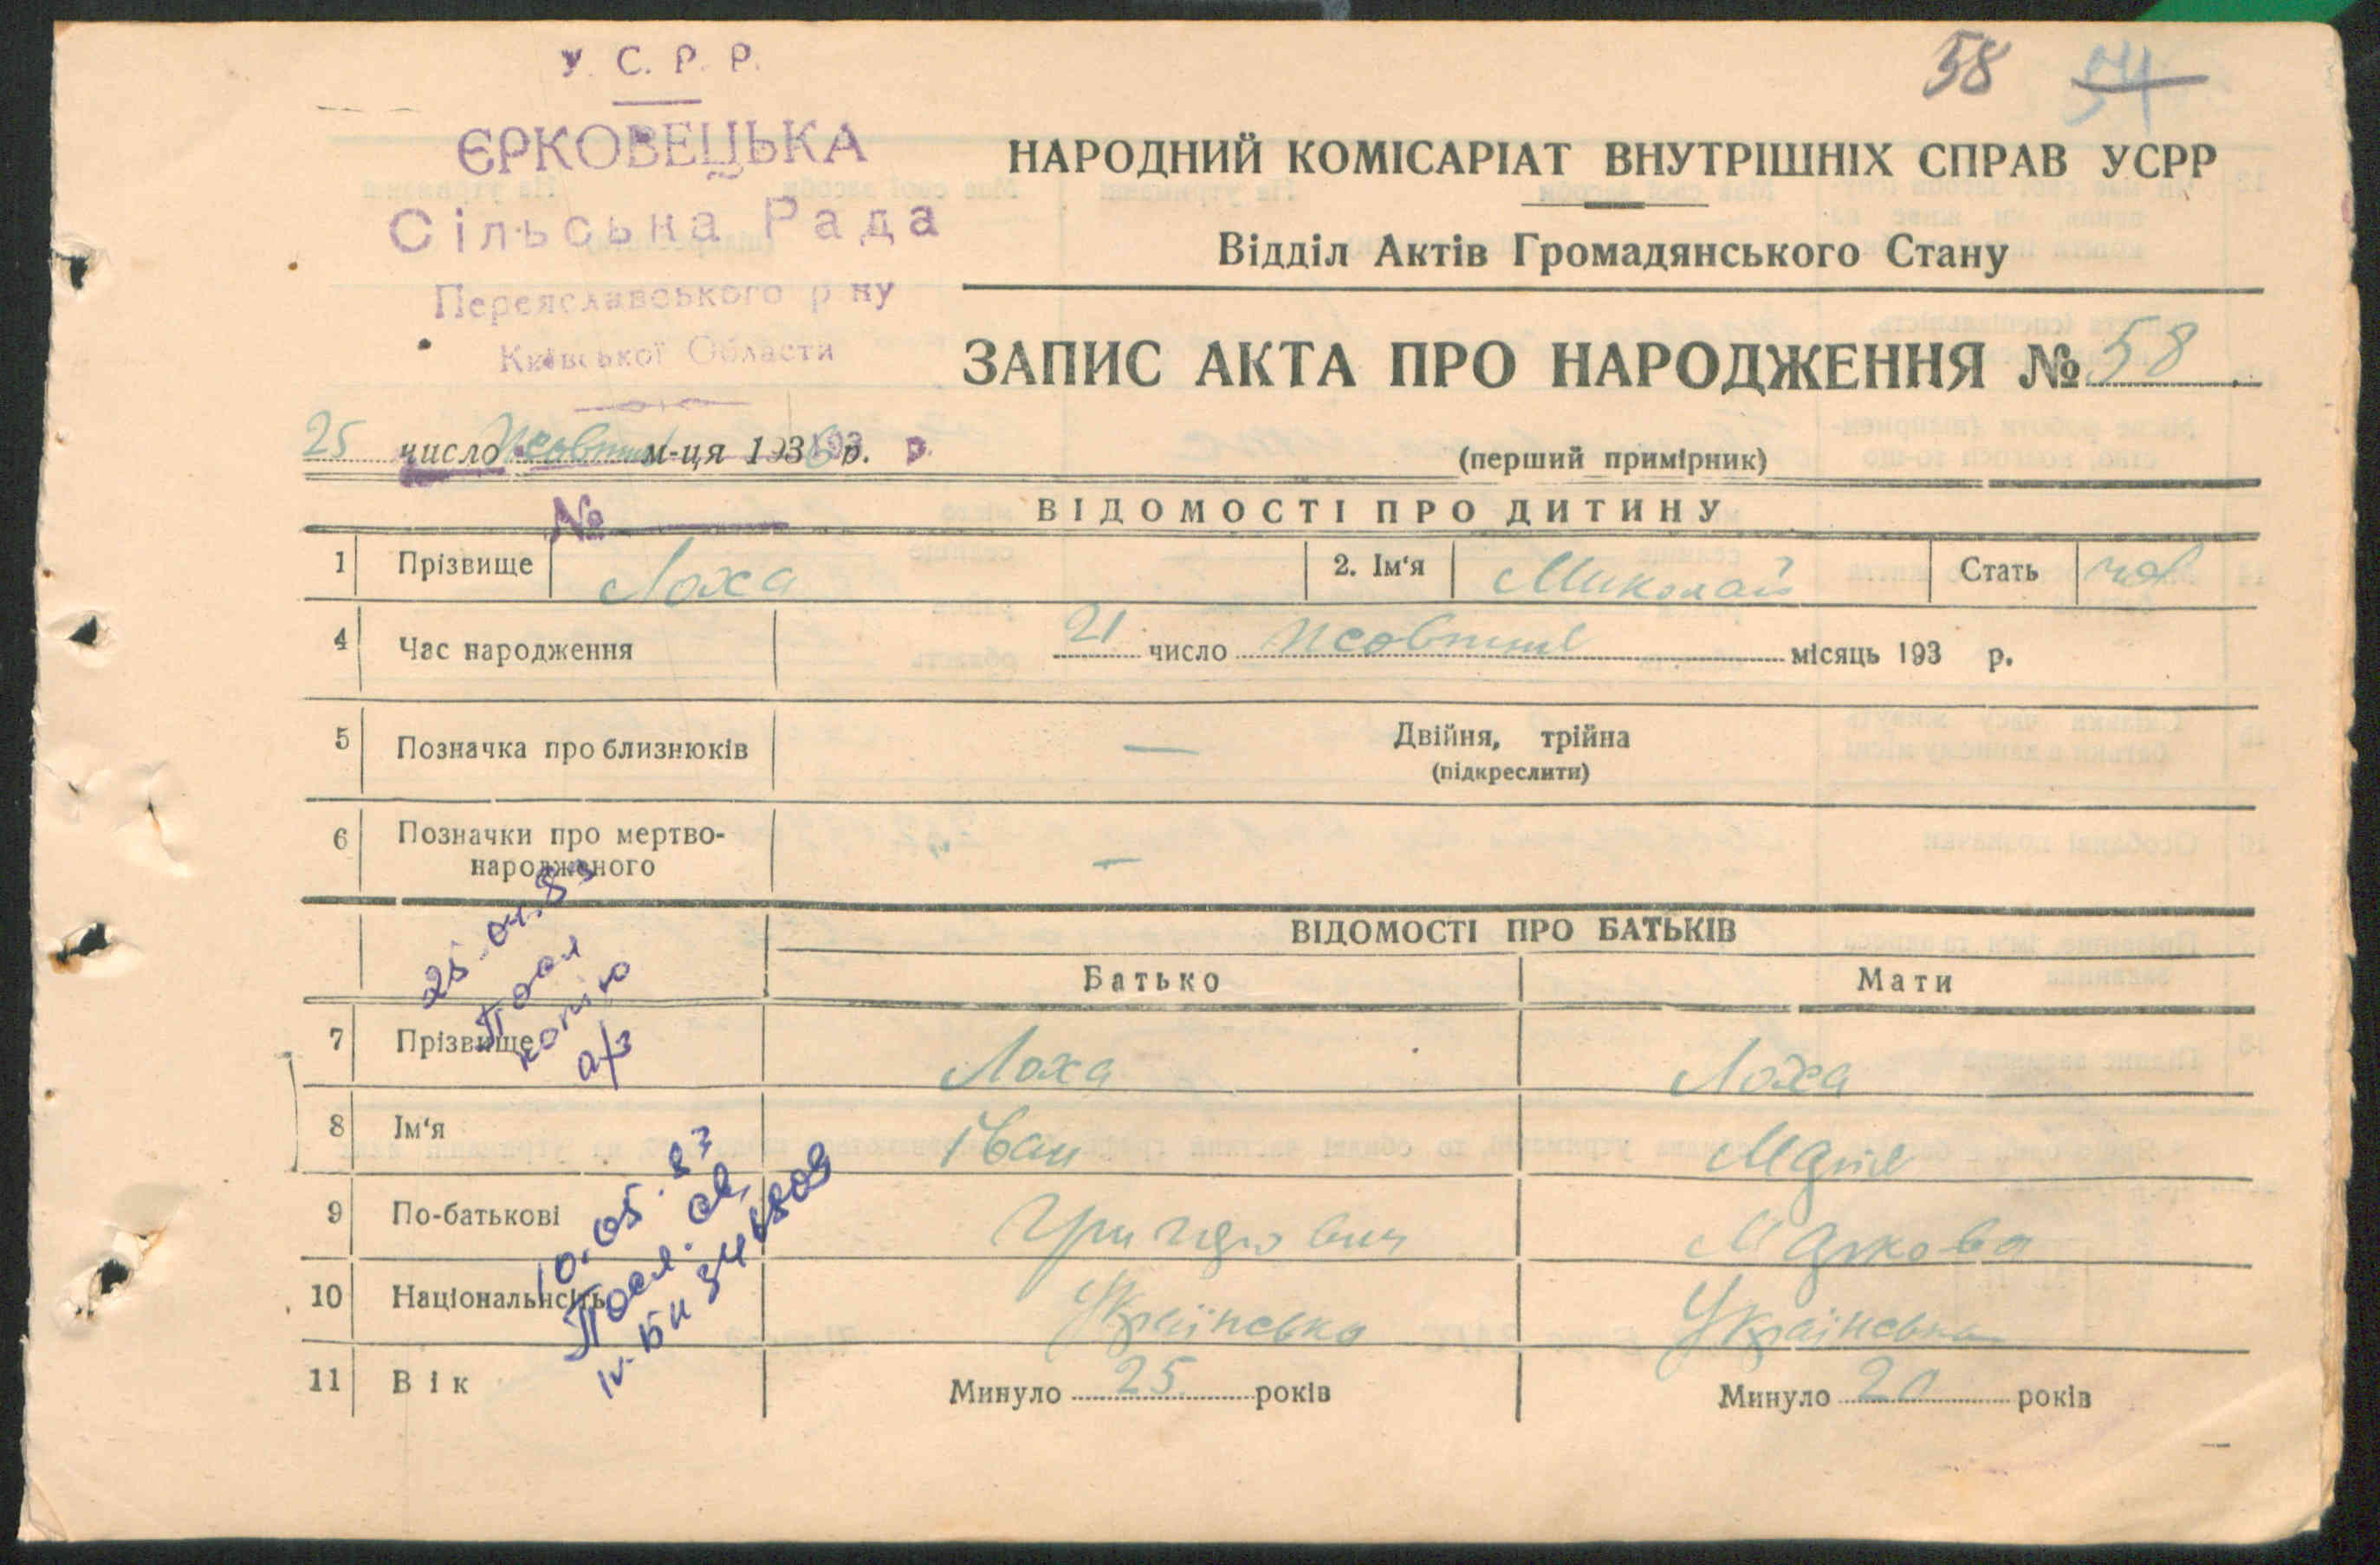 58 54
У. С. Р. Р.
ЄРКОВЕЦЬКА
Сільська Рада
Переяславського р ну
Київської Області
НАРОДНИЙ КОМІСАРІАТ ВНУТРІШНІХ СПРАВ УСРР
Відділ Актів Громадянського Стану
ЗАПИС АКТА ПРО НАРОДЖЕННЯ № 58
25 число Жовтня м-ця 193 р. р.
(перший примірник)
№
ВІДОМОСТІ ПРО ДИТИНУ
1 Прізвище Лоха 2. Ім'я Миколай Стать чол
4 Час народження 21 число Жовтня місяць 193 р.
5 Позначка про близнюків — Двійня, трійна
(підкреслити)
6 Позначки про мертво-
народженого —
ВІДОМОСТІ ПРО БАТЬКІВ
Батько Мати
7 Прізвище Лоха Лоха
8 Ім'я Іван Марія
9 По-батькові Григорович Маркова
10 Національність Українська Українська
11 Вік Минуло 25 років Минуло 20 років
25.04.83
Посл
копію
а/з
10.05.83
Посл. св.